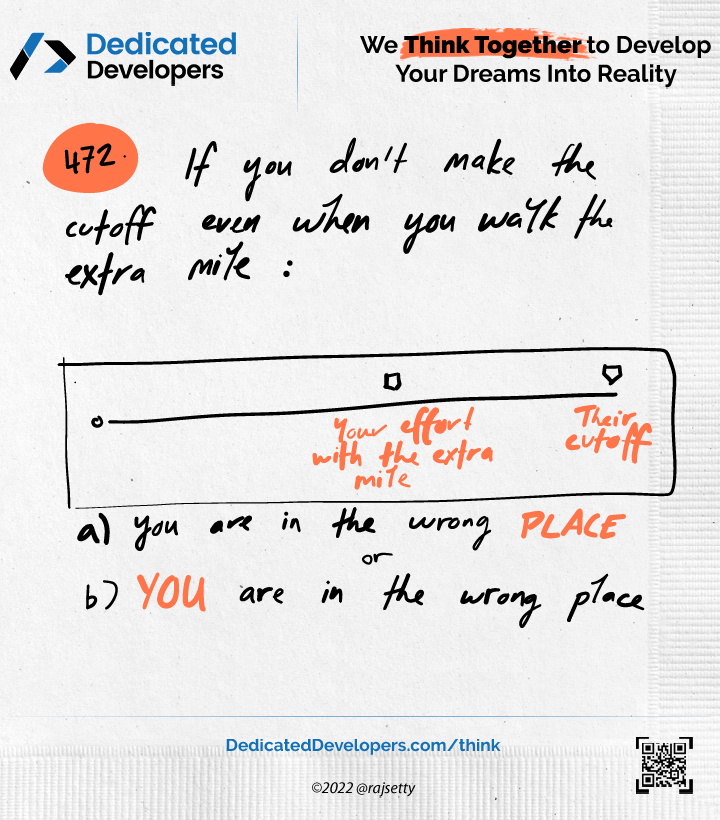 Dedicated
Developers
We Think Together to Develop
Your Dreams Into Reality
472.
If you don't make the
cutoff even when you walk the
extra mile :
Your effort
with the extra
mile
Their
cutoff
a) you are in the wrong PLACE
or
b) YOU are in the wrong place
DedicatedDevelopers.com/think
©2022 @rajsetty